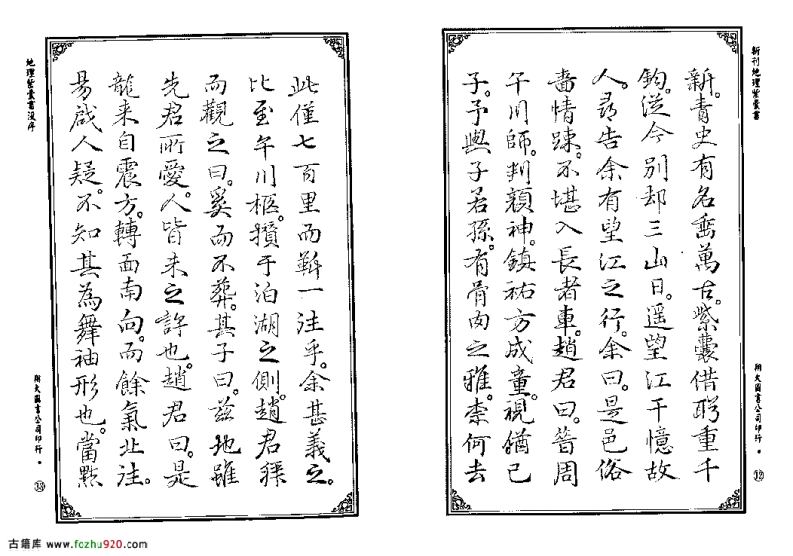 新刊地理紫囊書
新。青史有名垂萬古。紫囊借聆重千
鈞。從今別却三山日。遥望江干憶故
人。尋告余有望江之行。余曰。是邑俗
嗇情踈。不堪入長者車。趙君曰。昔周
午川師。判穎神。鎮祐方成童。視猶己
子。予與子若孫。有骨肉之雅。柰何去
翔大圖書公司印行 · ⑫
此僅七百里而靳一注乎。余甚義之。
比至午川柩。殯于泊湖之側。趙君
而觀之曰。奚而不葬。其子曰。兹地雖
先君所愛。人皆未之許也。趙君曰。是
龍来自震方。轉面南向。而餘氣北注。
易啟人疑。不知其為舞袖形也。當點
地理紫囊書序
翔大圖書公司印行 · ⑬
古籍库 www.fczhu920.com